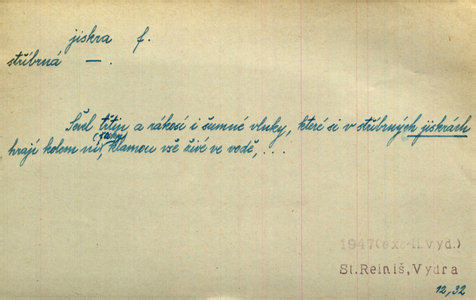 jiskra f.
stříbrná —.
Šeel třtin a rákosí i šumné vlnky, které si v stříbrných jiskrách
(rachy)
hrají kolem níž, klamou vše živé ve vodě, ...
1947 (exc. II. vyd.)
St. Reiniš, Vydra
12, 32